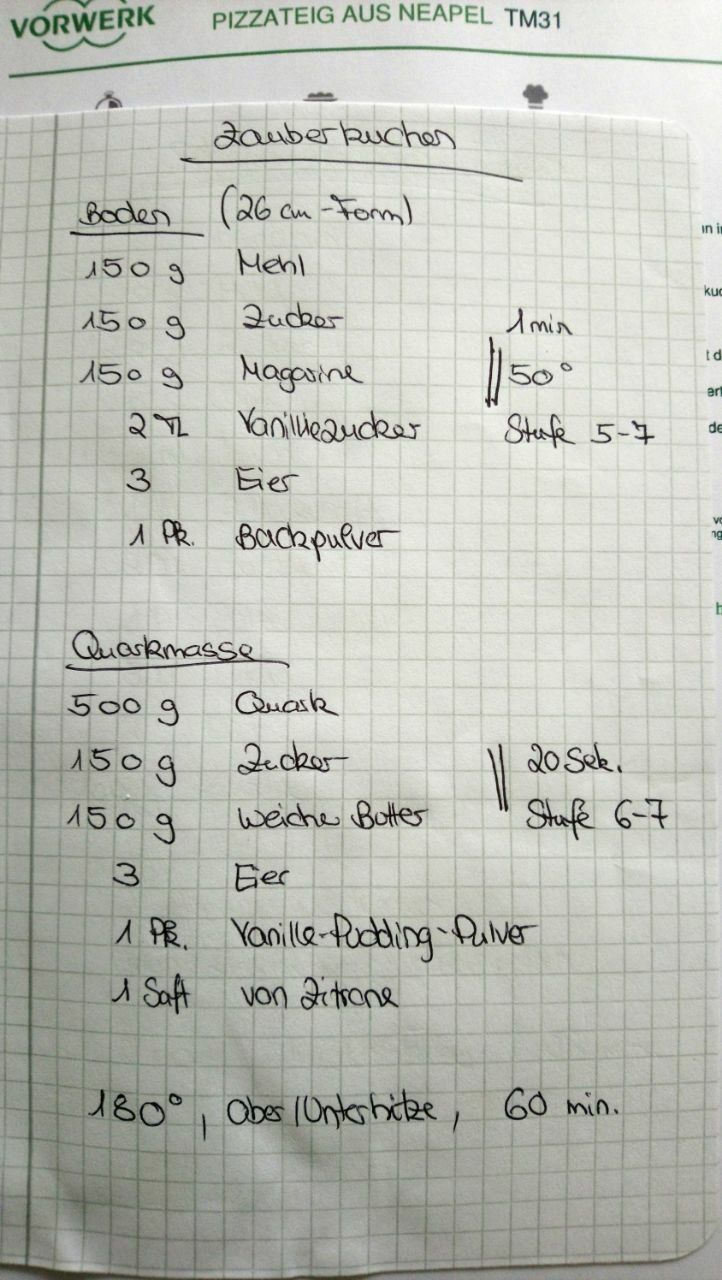 VORWERK PIZZATEIG AUS NEAPEL TM31
Zauberkuchen
Boden (26 cm-Form)
150 g Mehl
150 g Zucker 1 min
150 g Magarine 50°
2 TL Vanilliezucker Stufe 5-7
3 Eier
1 Pk. Backpulver
Quarkmasse
500 g Quark
150 g Zucker 20 Sek.
150 g weiche Butter Stufe 6-7
3 Eier
1 Pk. Vanille-Pudding-Pulver
1 Saft von Zitrone
180°, Ober/Unterhitze, 60 min.